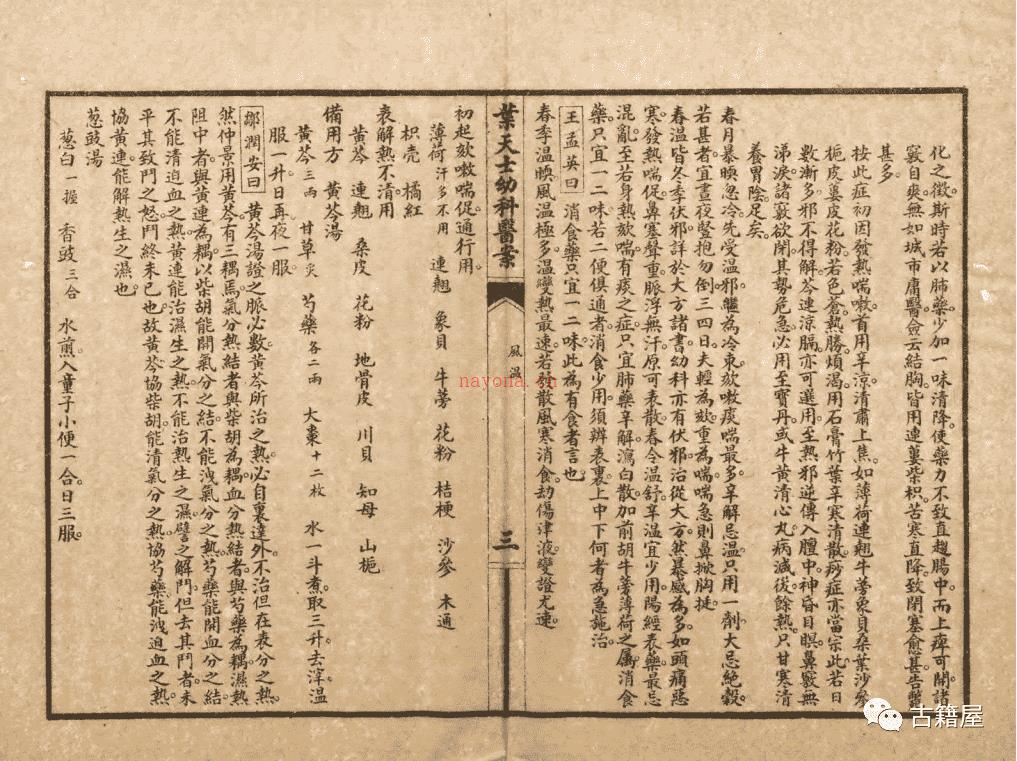 化之徵斯時若以肺藥少加一味清降使藥力不致直趨腸中而上痺可開諸
竅自爽無如城市庸醫僉云結胸皆用連蔞柴枳苦寒直降致閉塞愈甚告斃
甚多
按此症初因發熱喘嗽首用辛涼清肅上焦如薄荷連翹牛蒡象貝桑葉沙參
梔皮蔞皮花粉若色蒼熱勝煩渴用石膏竹葉辛寒清散痧症亦當宗此若日
數漸多邪不得解芩連涼膈亦可選用至熱邪逆傳入膻中神昏目瞑鼻竅無
涕淚諸竅欲閉其勢危急必用至寶丹或牛黃清心丸病減後餘熱只甘寒清
養胃陰足矣
春月暴暖忽冷先受溫邪繼為冷束欬嗽痰喘最多辛解忌溫只用一劑大忌絕穀
若甚者宜晝夜豎抱勿倒三四日夫輕為欬重為喘喘急則鼻掀胸挺
春溫皆冬季伏邪詳於大方諸書幼科亦有伏邪治從大方然暴感為多如頭痛惡
寒發熱喘促鼻塞聲重脈浮無汗原可表散春令溫舒辛溫宜少用陽經表藥最忌
混亂至若身熱欬喘有痰之症只宜肺藥辛解瀉白散加前胡牛蒡薄荷之屬消食
藥只宜一二味若二便俱通者消食少用須辨表裏上中下何者為急施治
王孟英曰 消食藥只宜一二味此為有食者言也
春季溫暖風溫極多溫變熱最速若發散風寒消食劫傷津液變證尤速
葉天士幼科醫案 風溫 三
初起欬嗽喘促通行用
薄荷汗多不用 連翹 象貝 牛蒡 花粉 桔梗 沙參 木通
枳壳 橘紅
表解熱不清用
黃芩 連翹 桑皮 花粉 地骨皮 川貝 知母 山梔
備用方 黃芩湯
黃芩三兩 甘草炙 芍藥各二兩 大棗十二枚 水一斗煮取三升去滓溫
服一升日再夜一服
鄒潤安曰 黃芩湯證之脈必數黃芩所治之熱必自裏達外不治但在表分之熱
然仲景用黃芩有三耦焉氣分熱結者與柴胡為耦血分熱結者與芍藥為耦濕熱
阻中者與黃連為耦以柴胡能開氣分之結不能洩氣分之熱芍藥能開血分之結
不能清迫血之熱黃連能治濕生之熱不能治熱生之濕譬之解鬥但去其鬥者未
平其致鬥之怒鬥終未已也故黃芩協柴胡能清氣分之熱協芍藥能洩迫血之熱
協黃連能解熱生之濕也
葱豉湯
葱白一握 香豉三合 水煎入童子小便一合日三服
nayona.cn
古籍屋